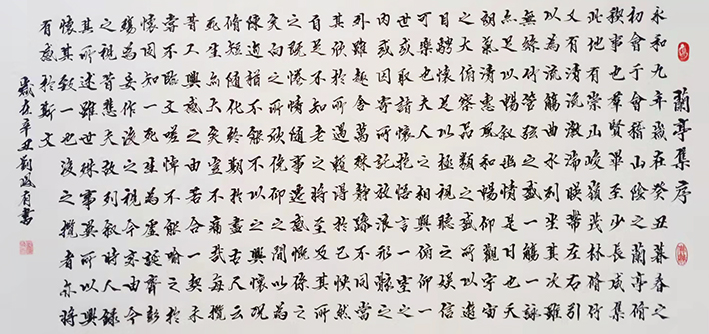 蘭亭集序
永和九年歲在癸丑暮春之
初會于會稽山陰之蘭亭脩
禊事也群賢畢至少長咸集
此地有崇山峻嶺茂林脩竹
又有清流激湍映帶左右引
以為流觴曲水列坐其次雖
無絲竹管弦之盛一觴一詠
亦足以暢敘幽情是日也天
朗氣清惠風和暢仰觀宇宙
之大俯察品類之盛所以遊
目騁懷足以極視聽之娛信
可樂也夫人之相與俯仰一
世或取諸懷抱悟言一室之
內或因寄所託放浪形骸之
外雖趣舍萬殊靜躁不同當
其欣於所遇暫得於己快然
自足不知老之將至及其所
之既倦情隨事遷感慨係之
矣向之所欣俛仰之間以為
陳迹猶不能不以之興懷況
脩短隨化終期於盡古人云
死生亦大矣豈不痛哉每攬
昔人興感之由若合一契未
嘗不臨文嗟悼不能喻之於
懷固知一死生為虛誕齊彭
殤為妄作後之視今亦由今
之視昔悲夫故列敘時人錄
其所述雖世殊事異所以興
懷其致一也後之攬者亦將
有感於斯文
歲在辛丑劉書